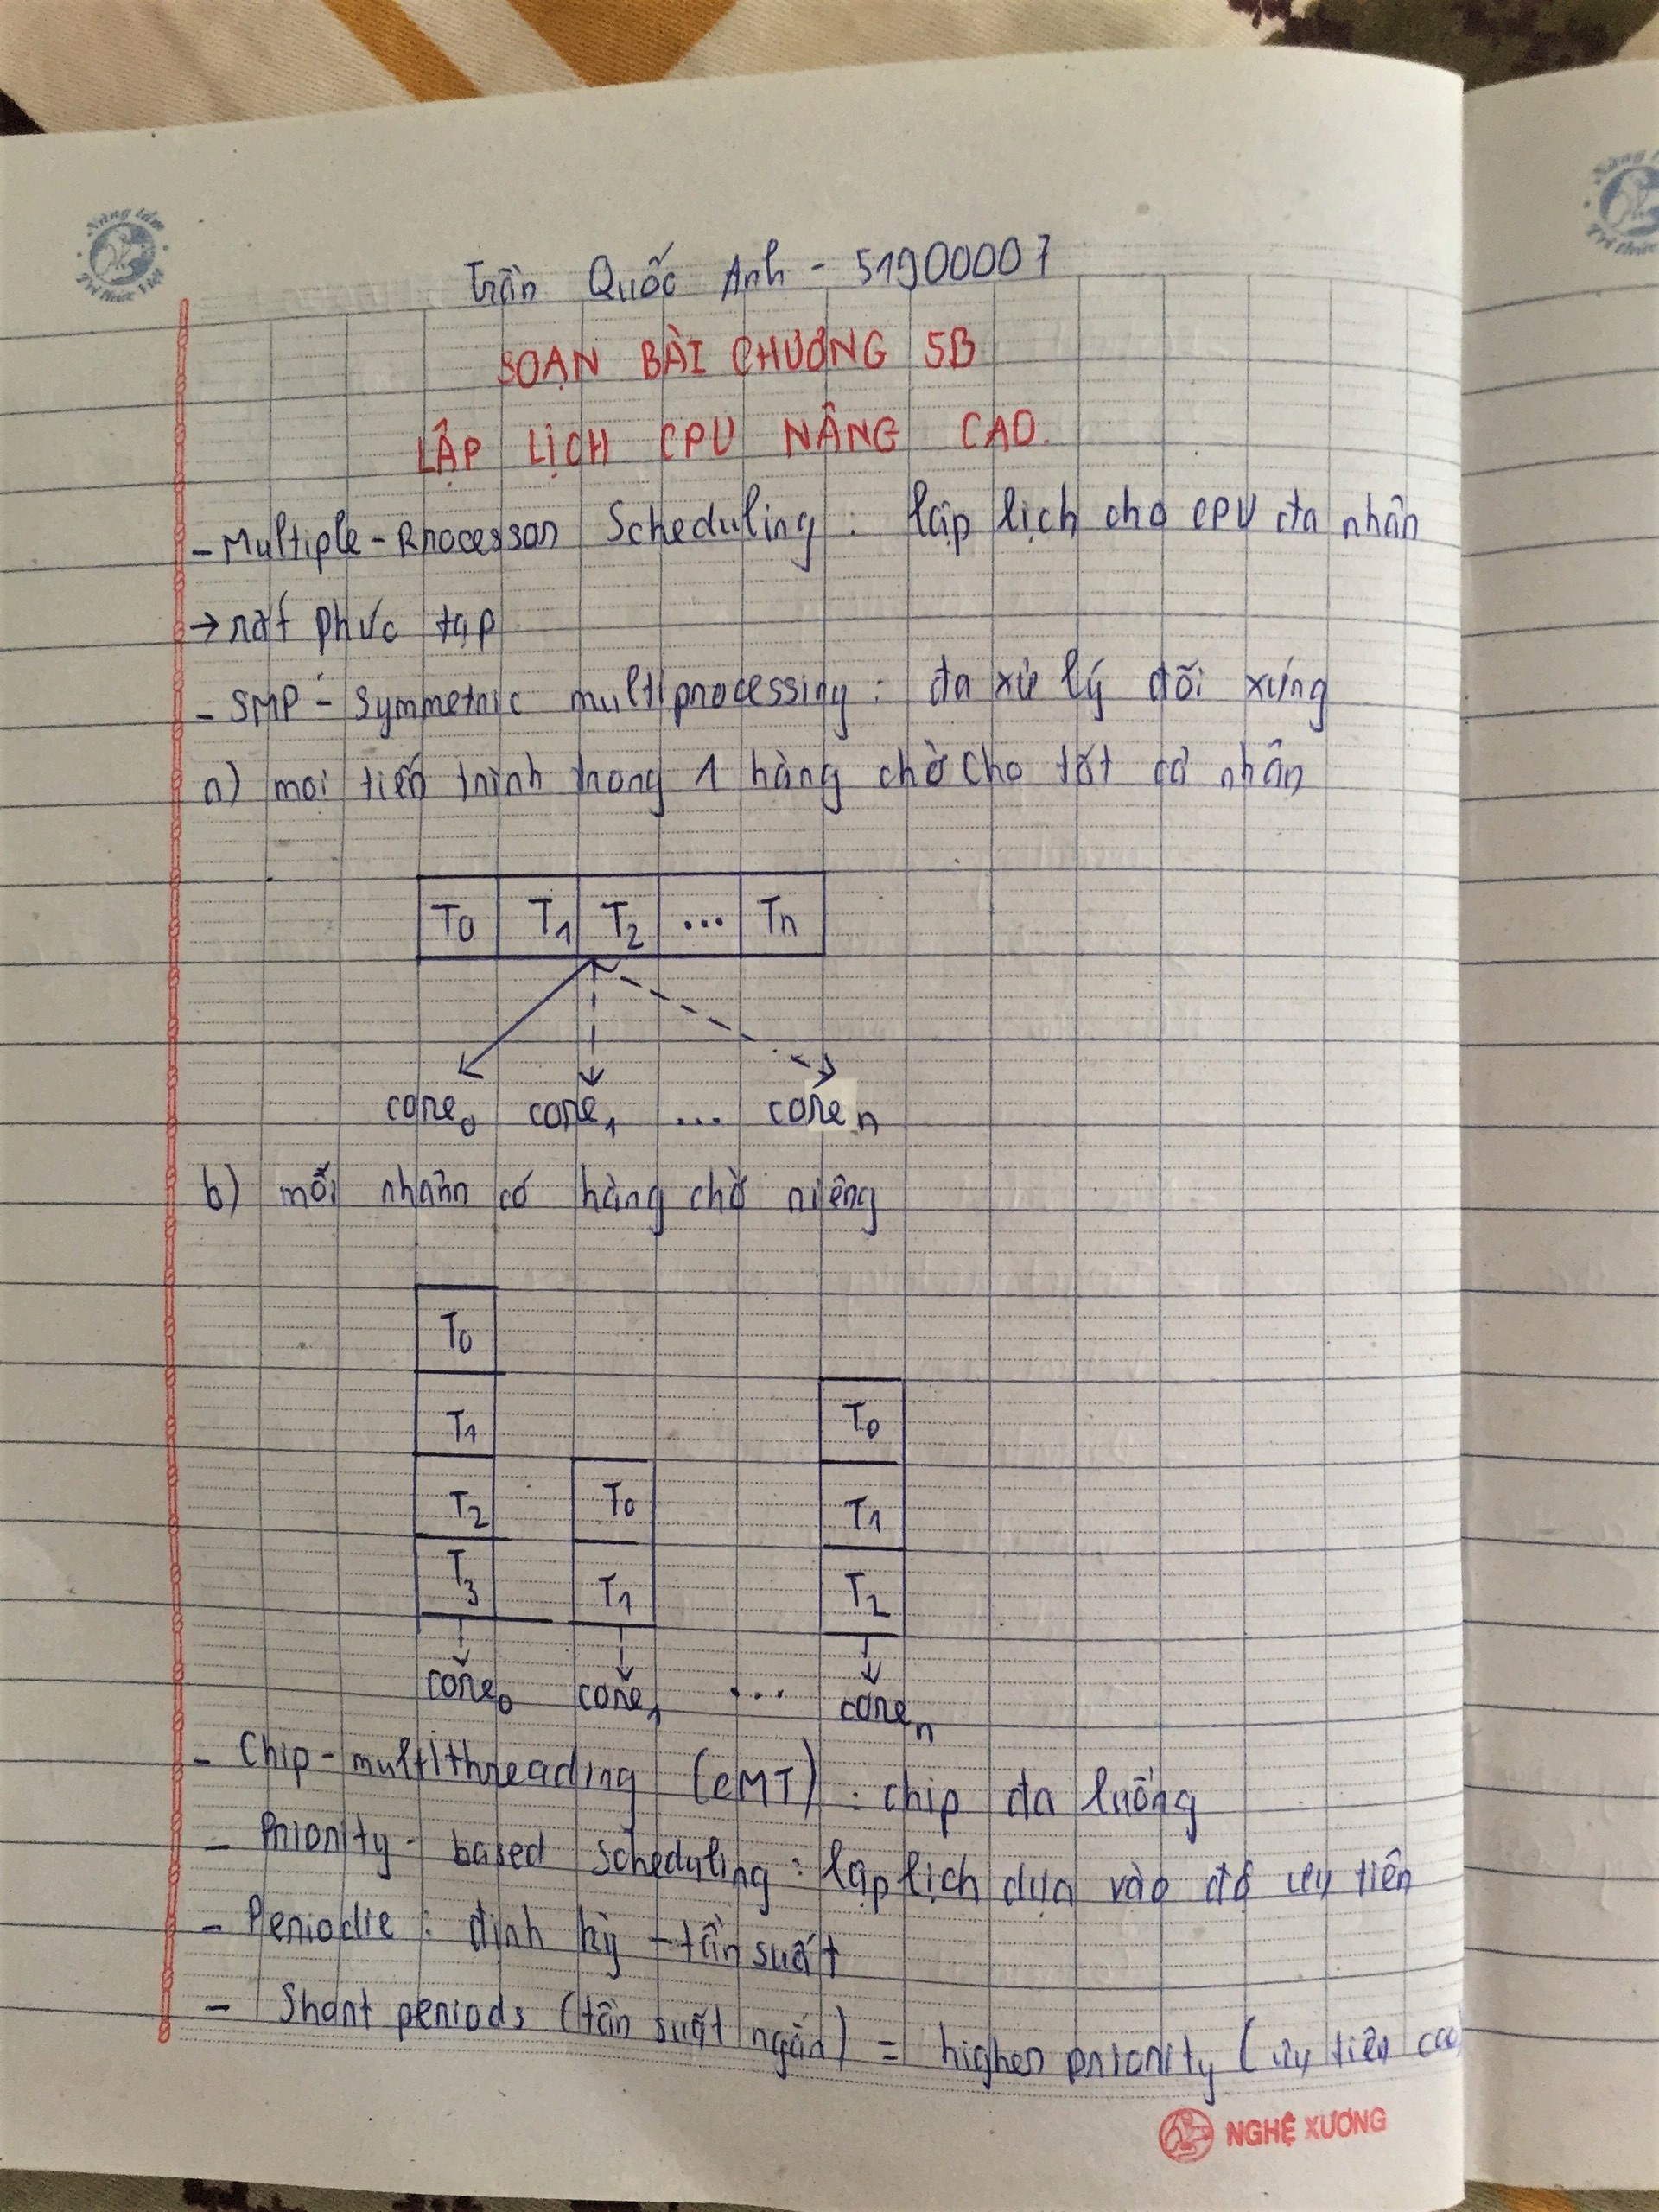 Nâng tầm
Tri thức Việt
Trần Quốc Anh - 51900007
SOẠN BÀI CHƯƠNG 5B
LẬP LỊCH CPU NÂNG CAO.
- Multiple-Processor Scheduling: lập lịch cho CPU đa nhân
→ rất phức tạp
- SMP - Symmetric multiprocessing: đa xử lý đối xứng
a) mọi tiến trình trong 1 hàng chờ cho tất cả nhân
T0 T1 T2 ... Tn
core0 core1 ... core n
b) mỗi nhân có hàng chờ riêng
T0
T1 T0
T2 T0 T1
T3 T1 T2
core0 core1 ... core n
- Chip-multithreading (CMT): chip đa luồng
- Priority-based scheduling: lập lịch dựa vào độ ưu tiên
- Periodic: định kỳ - tần suất
- Short periods (tần suất ngắn) = higher priority (ưu tiên cao)
NGHỆ XƯƠNG